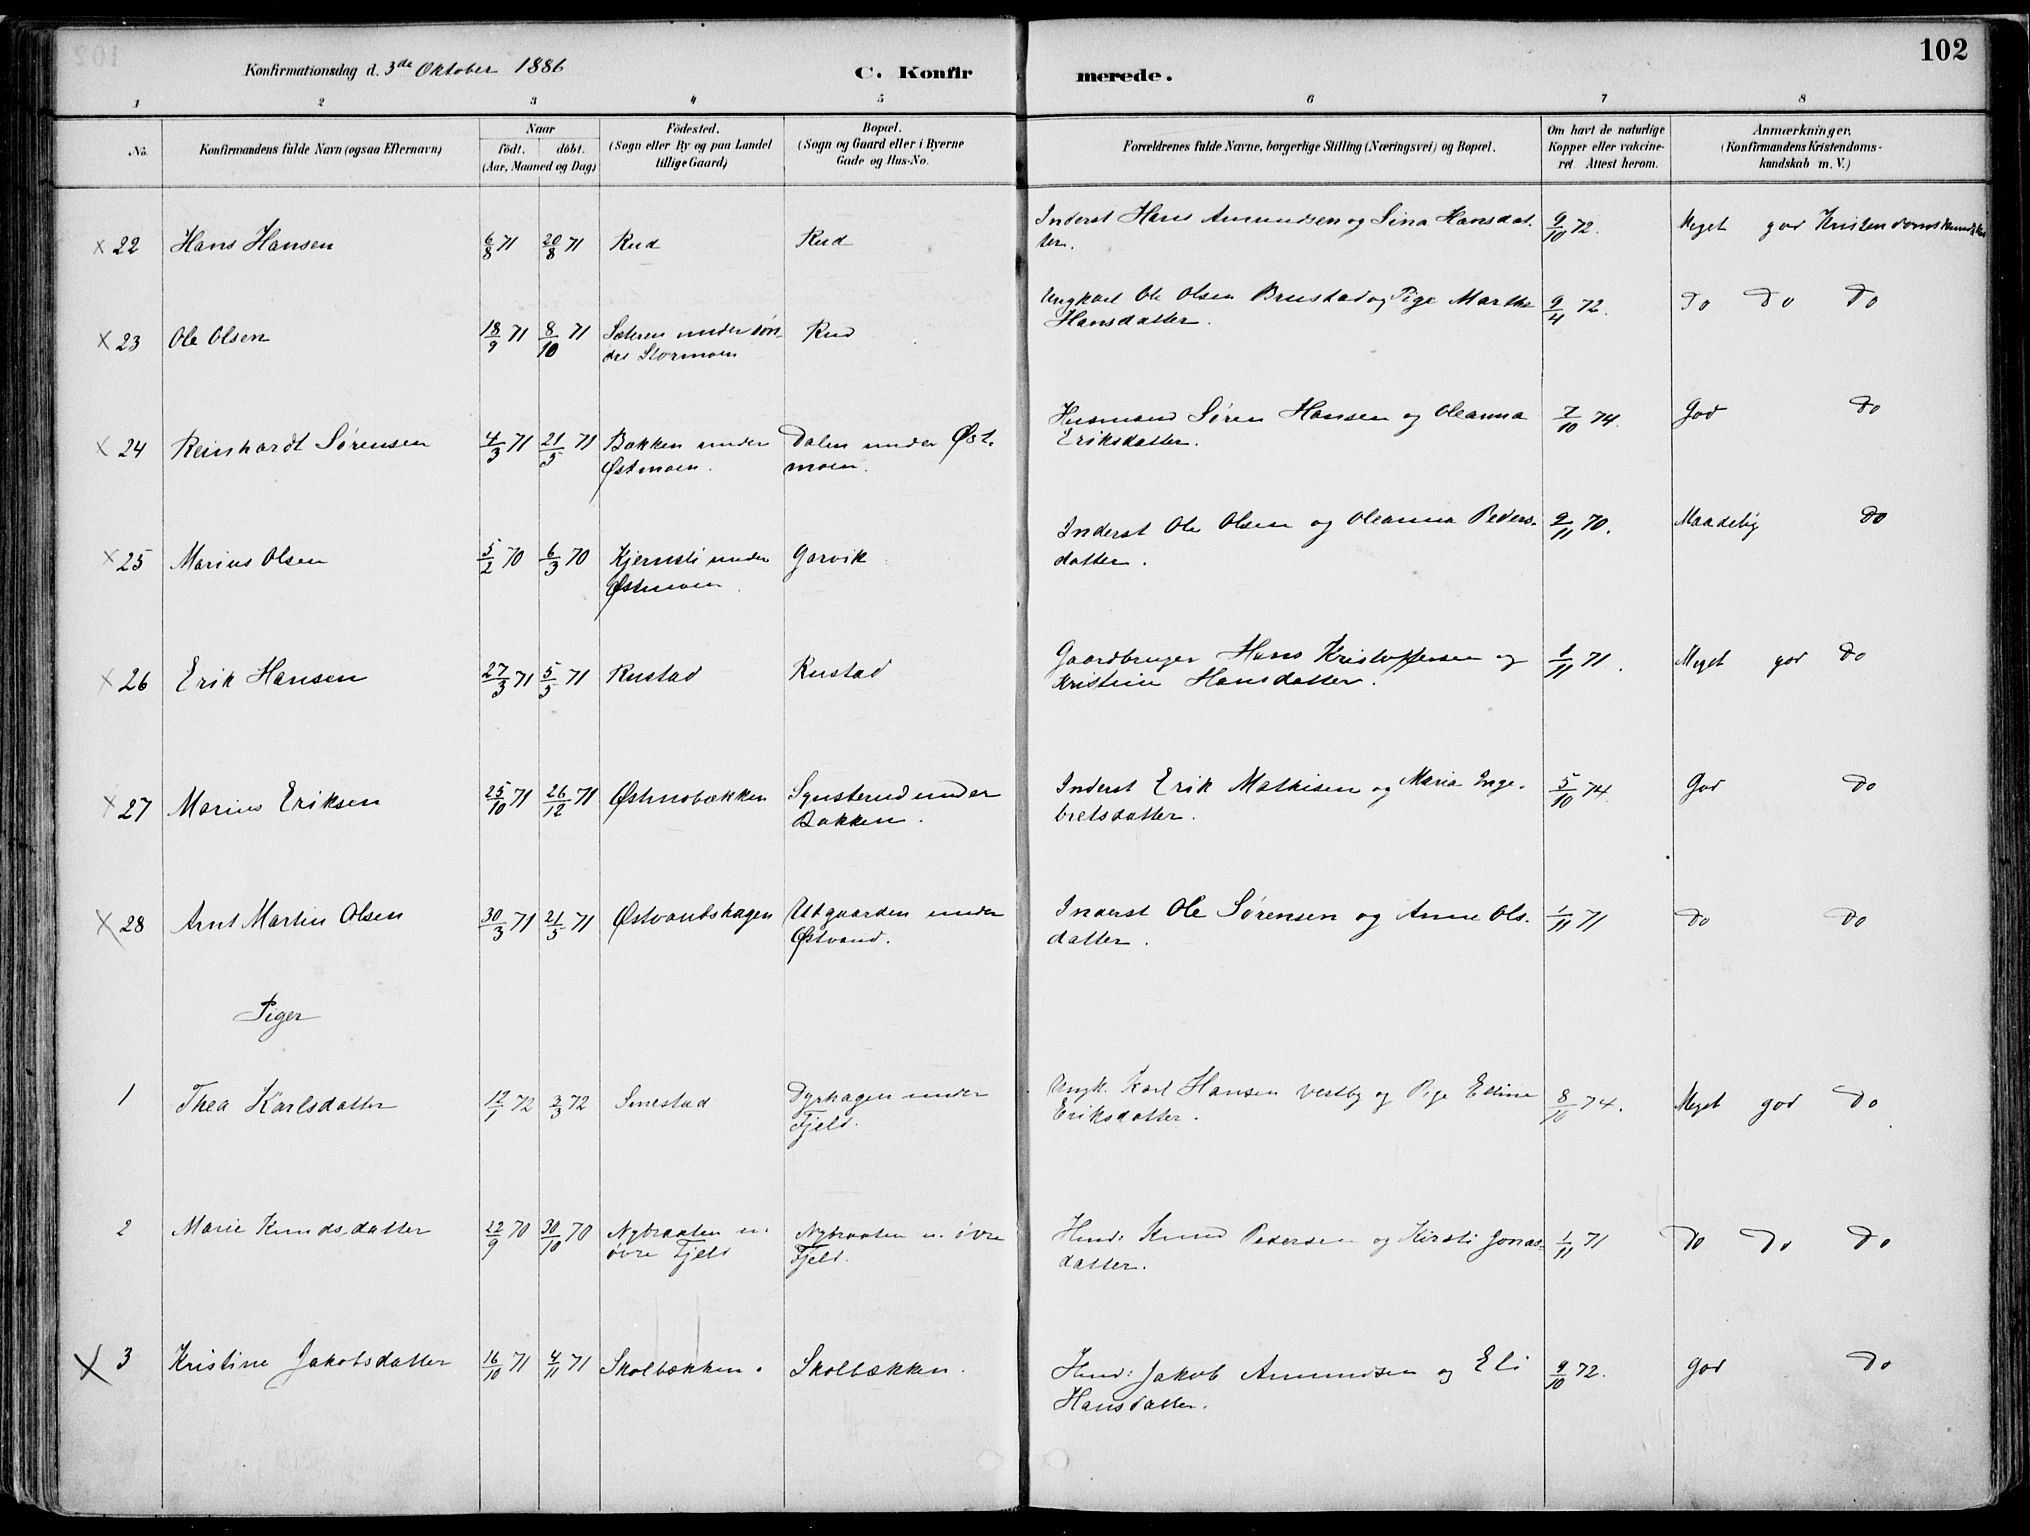 Konfirmationsdag d. 3de Oktober 1886
C. Konfirmerede.
102
1 2 3 4 5 6 7 8
No.
Konfirmandens fulde Navn (ogsaa Efternavn)
Naar
födt. döbt.
(Aar, Maaned og Dag)
Födested.
(Sogn eller By og paa Landet
tillige Gaard)
Bopæl.
(Sogn og Gaard eller i Byerne
Gade og Hus-No.
Forældrenes fulde Navne, borgerlige Stilling (Næringsvei) og Bopæl.
Om havt de naturlige
Kopper eller vakcine-
ret Attest herom.
Anmærkninger.
(Konfirmandens Kristendoms-
kundskab m. V.)
x 22 Hans Hansen 6/8 71 20/8 71 Rud Rud Inderst Hans Amundsen og Sina Hansdat-
ter. 9/10 72. Meget god Kristendomskundskab
x 23 Ole Olsen 18/9 71 8/10 71 Sæteren under søn-
dre Stormoen Rud Ungkarl Ole Olsen Brustad og Pige Marthe
Hansdatter. 9/4 72. Do Do Do
x 24 Reinhardt Sørensen 4/3 71 21/5 71 Bakken under
Østmoen. Dalen under Øst-
moen. Husmand Søren Hansen og Oleanna
Eriksdatter. 7/10 74. God Do
x 25 Marius Olsen 5/2 70 6/3 70 Kjernsli under
Østmoen. Garvik Inderst Ole Olsen og Oleanna Peders-
datter. 9/11 70. Maadelig Do
x 26 Erik Hansen 27/3 71 5/5 71 Rustad Rustad Gaardbruger Hans Kristoffersen og
Kristine Hansdatter. 1/11 71. Meget god Do
x 27 Marius Eriksen 25/10 71 26/12 71 Østmobækken Synsterud under
Bakken. Inderst Erik Mathisen og Maria Inge-
bretsdatter. 5/10 74. God Do
x 28 Arnt Martin Olsen 30/3 71 21/5 71 Østvandshagen Utgaarden under
Østvand. Inderst Ole Sørensen og Anne Ols-
datter. 1/11 71 Do Do
Piger
1 Thea Karlsdatter 12/1 72 3/3 72 Smestad Dyrhagen under
Fjeld. Ungk. Karl Hansen Vestby og Pige Eline
Eriksdatter. 8/10 74. Meget god Do
2 Marie Knudsdatter 22/9 70 30/10 70 Nybraaten u.
övre Fjeld Nybraaten u. övre
Fjeld. Husm: Knud Pedersen og Kirsti Jonas-
datter. 1/11 71 Do Do Do
x 3 Kristine Jakobsdatter 16/10 71 4/11 71 Skolbækken. Skolbækken. Husm: Jakob Amundsen og Eli
Hansdatter. 9/10 72. God Do